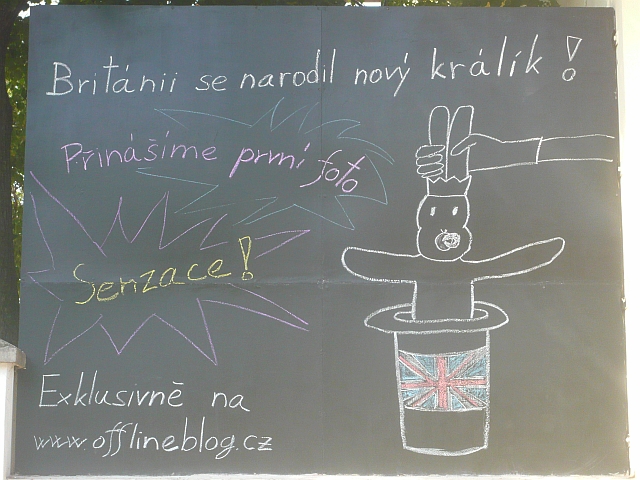 Británii se narodil nový králík!
Přinášíme první foto
Senzace!
Exklusivně na
www.offlineblog.cz